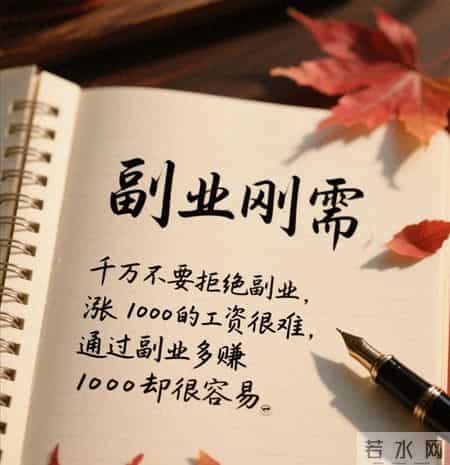 副业刚需
千万不要拒绝副业，
涨1000的工资很难，
通过副业多赚
1000却很容易。
若水网